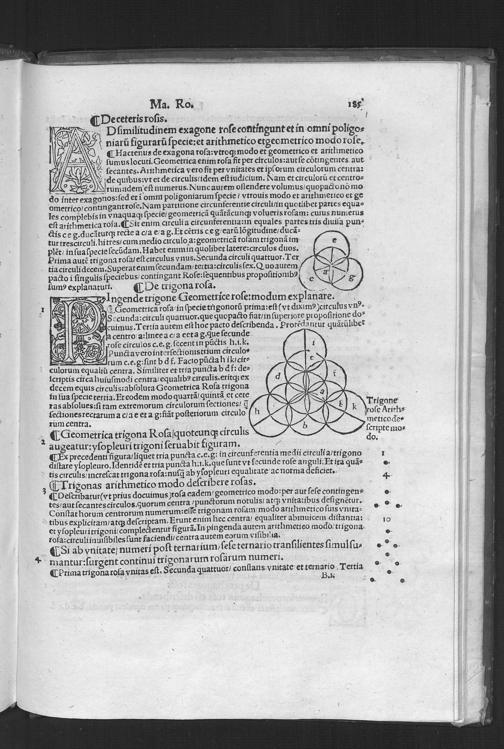 Ma. Ro.
185
¶ De ceteris rosis.
AD similitudinem exagone rose contingunt et in omni poligo-
niarũ figurarũ specie: et arithmetico et geometrico modo rose.
¶ Hactenus de exagona rosa: vtroq; modo et geometrico et arithmetico
sumus locuti. Geometrica enim rosa fit per circulos: aut se cõtingentes aut
secantes. Arithmetica vero fit per vnitates et ipsorum circulorum centra:
de quibus: vt et de circulis: idem est iudicium. Nam et circulorũ et centro-
rum: idem est numerus. Nunc autem ostendere volumus: quo pacto nõ mo
do inter exagonos: sed et in omni poligoniarum specie: vtrouis modo et arithmetico et ge
ometrico: contingant rose. Nam partitione circunferentie circuli: in quotlibet partes equa-
les complebis in vnaquaq; specie: geometricã quãtãcunq; volueris rosam: cuius numerus
est arithmetica rosa. ¶ Sit enim circuli a circunferentia: in equales partes tris diuisa pun-
ctis c e g. ducãturq; recte a c: a e: a g. Et cẽtris c e g: earũ lõgitudine: ducã-
tur tres circuli. hi tres: cum medio circulo a: geometricã rosam trigonã im
plẽt: in sua specie secũdam. Habet enim in quolibet latere: circulos duos.
Prima autẽ trigona rosa: est circulus vnus. Secunda: circuli quattuor. Ter
tia: circuli decem. Superat enim secundam: tertia: circulis sex. Quo autem
pacto i singulis speciebus: contingant Rose: sequentibus propositionib9
sum9 explanaturi.
¶ De trigona rosa.
1
PIngende trigone Geometrice rose: modum explanare.
¶ Geometrica rosa: in specie trigonorũ prima: est (vt diximus) circulus vn9.
Secunda: circuli quattuor. que quo pacto fiat: in superiore propositione do-
cuimus. Tertia autem est hoc pacto describenda. Protẽdantur quãtũlibet
a centro a: linee a c: a e: a g. que secunde
rose circulos c. e. g. secent in pũctis h. i. k.
Puncta vero intersectionis trium circulo-
rum c. e. g: sint b d f. Facto pũcta h i k: cir-
culorum equaliũ centra. Similiter et tria puncta b d f: de-
scriptis circa huiusmodi centra: equalib9 circulis. eritq; ex
decem equis circulis: absoluta Geometrica Rosa trigona
in sua specie tertia. Et eodem modo quartã: quintã et cete
ras absolues: si tam extremorum circulorum sectiones: q̃
sectiones rectarum a c: a e et a g: fiãt posteriorum circulo
rum centra.
2
¶ Geometrica trigona Rosa: quoteunq; circulis
augeatur: ysopleuri trigoni seruabit figuram.
¶ Ex precedenti figura: liquet tria puncta c. e. g: in circunferentia medii circuli a: trigono
distare ysopleuro. Identidẽ et tria puncta h. i. k. que sunt vt secunde rose anguli. Et ita quã-
tis circulis: increscat trigona rosa: nusq̃ ab ysopleuri equalitate: ac norma deficiet.
3
¶ Trigonas arithmetico modo describere rosas.
¶ Describatur (vt prius docuimus) rosa eadem: geometrico modo: per aut sese contingen-
tes: aut secantes circulos. quorum centra: punctorum notulis: atq; vnitatibus designẽtur.
Constat horum centrorum numerum: esse trigonam rosam: modo arithmetico suis vnita-
tibus explicitam: atq; descriptam. Erunt enim hec centra: equaliter abinuicem distantia:
et ysopleuri trigoni: complectentur figurã. In pingenda autem arithmetico modo: trigona
rosa: circuli inuisibiles sunt faciendi: centra autem eorum visibilia.
4
¶ Si ab vnitate: numeri post ternarium: sese ternario transilientes simul su-
mantur: surgent continui trigonarum rosarum numeri.
¶ Prima trigona rosa vnitas est. Secunda quattuor: constans vnitate et ternario. Tertia
B.i.
e
a
c
g
i
e
d
f
a
c
g
h
b
k
Trigone
rose Arith-
metico de-
scripte mo-
do.
1
4
10